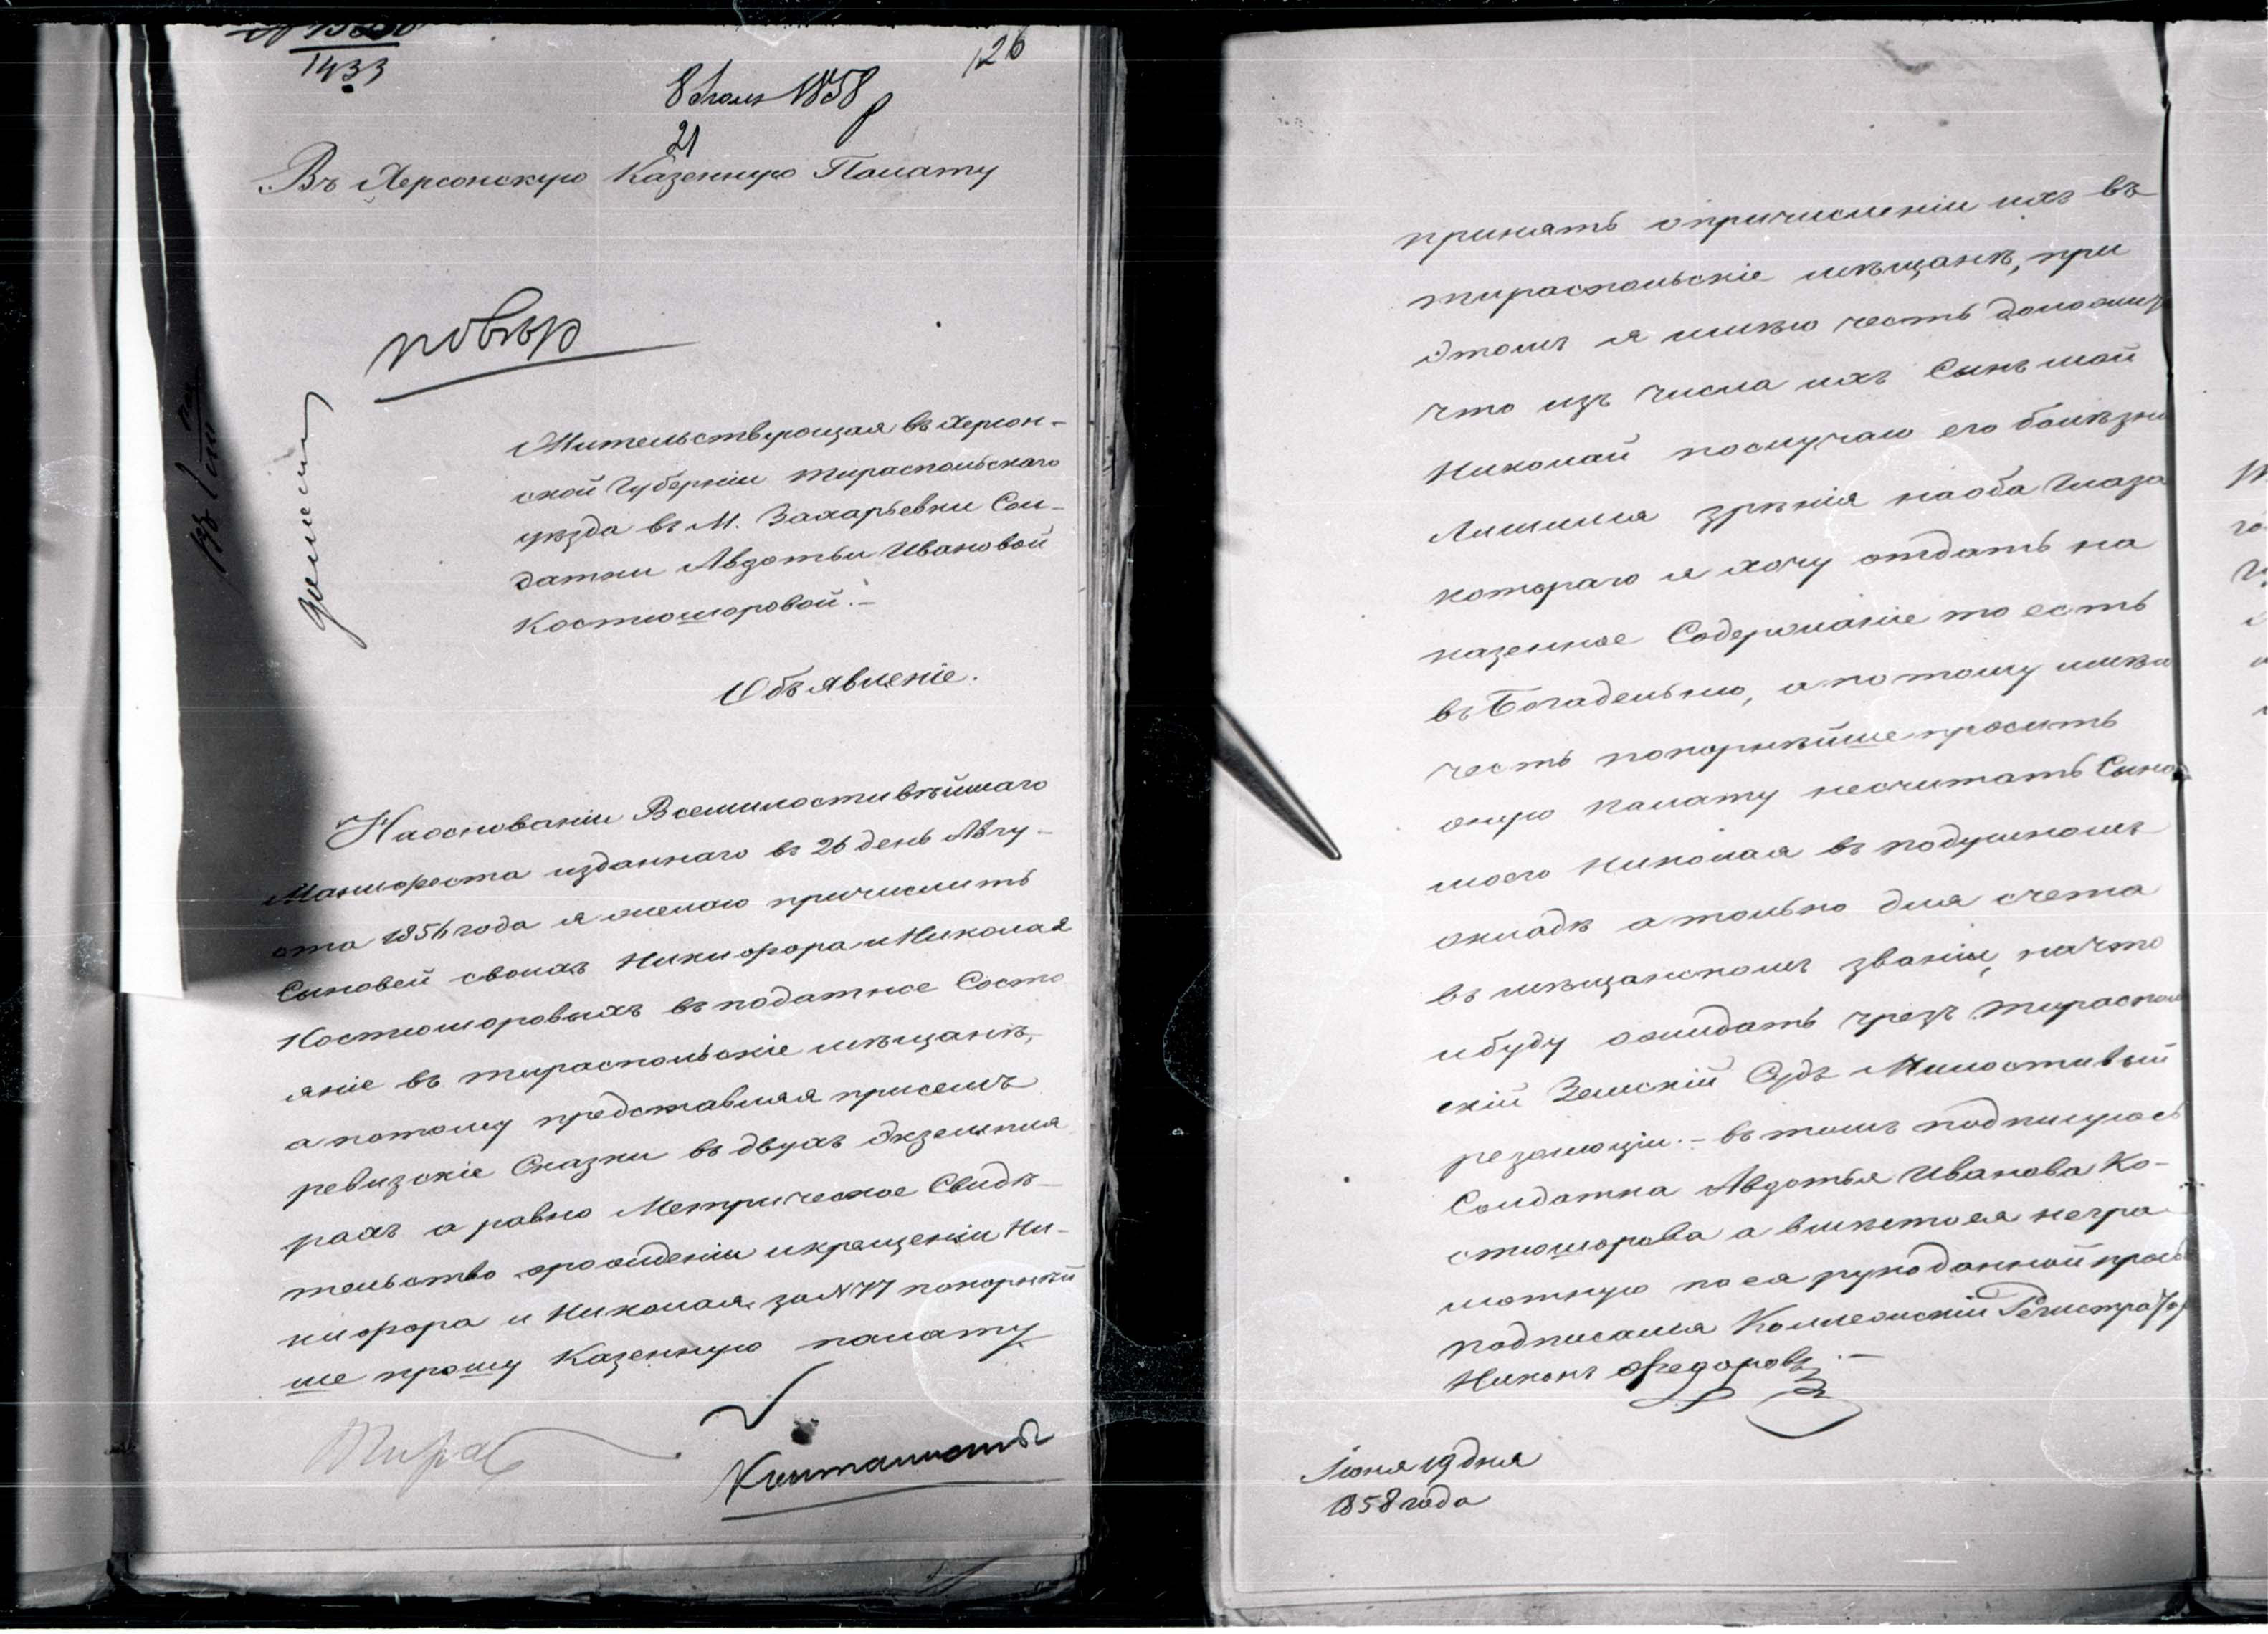 1433
126
8 Июля 1858
21
Въ Херсонскую Казенную Палату
повѣр
Жительствующая въ Херсон-
ской Губерніи Тираспольскаго
уѣзда въ М. Захарьевки Сол-
датки Авдотьи Ивановой
Костюшоровой.-
Объявленіе.
Наоснованіи Всемилостивѣйшаго
Манифеста изданнаго въ 26 день Авгу-
ста 1856 года я желаю причислить
Сыновей своихъ Никифора и Николая
Костюшоровыхъ въ податное Состо
яніе въ тираспольскіе мѣщанѣ,
а потому представляя присемъ
ревизскіе Сказки въ двухъ экземпля
рахъ а равно Метрическое Свидѣ-
тельство орожденіи икрещеніи Ни-
кифора и Николая за №77 покорнѣй
ше прошу Казенную палату
Тирас
принять опричисленіи ихъ въ
тираспольскіе мѣщанѣ, при
этомъ я имѣю честь доложить
что изъ числа ихъ Сынъ мой
Николай послучаю его болѣзни
Лишился зрѣнія наоба Глаза
котораго я хочу отдать на
казенное Содержаніе то есть
въ Богадельню, а потому имѣю
честь покорнѣйше просить
оную палату несчитать Сына
моего Николая въ подушномъ
окладѣ атолько для счета
въ мѣщанскомъ званіи, начто
ибуду ожидать чрезъ тирасполь
скій Земскій Судъ Милостивый
резолюціи.- въ томъ подписуюсь
Солдатка Авдотья Иванова Ко-
стюшорова а вмѣсто ея негра-
мотную по ея рукоданной прось
подписался Коллежскій Регистраторъ
Никонъ Федоровъ.-
Іюня 19 дня
1858 года